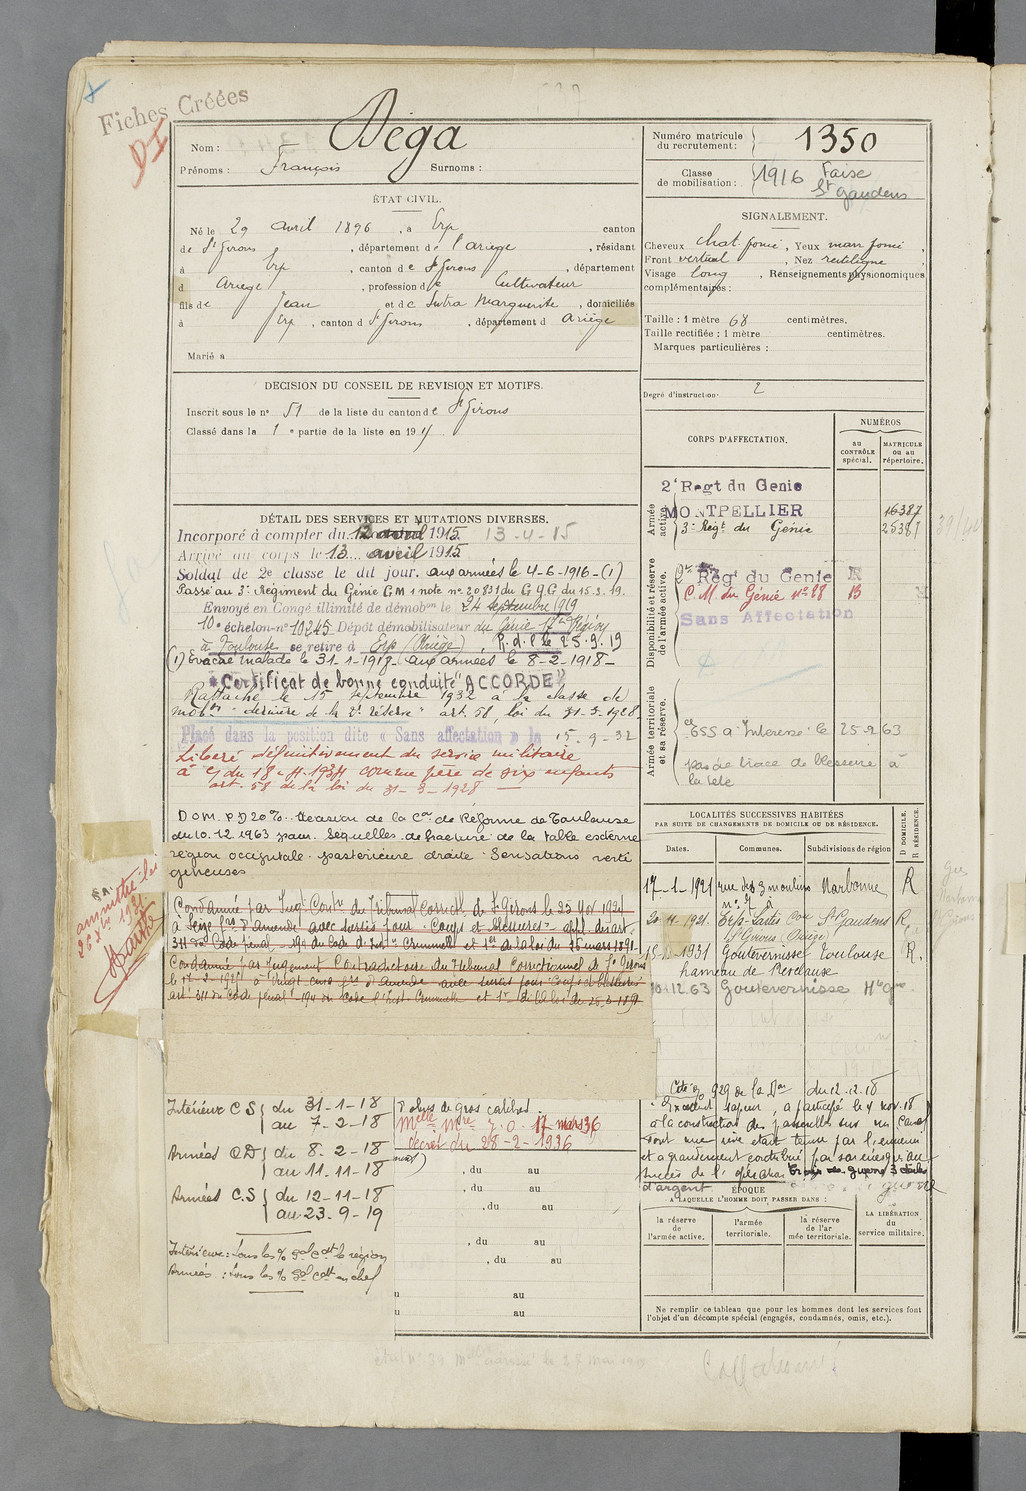 Fiches Créées
DI
Nom : Dega
Prénoms : François Surnoms :
Numéro matricule du recrutement : 1350
Classe de mobilisation : 1916
St Gaudens
ÉTAT CIVIL.
Né le 29 avril 1896, à Erp canton
de St Girons, département de l'Ariège, résidant
à Erp, canton de St Girons, département
d Ariège, profession de Cultivateur
fils de Jean et de Sutra Marguerite, domiciliés
à Erp, canton d St Girons, département d Ariège
Marié à
SIGNALEMENT.
Cheveux chat. foncé, Yeux marr foncé,
Front vertical, Nez rectiligne,
Visage long, Renseignements physionomiques
complémentaires :
Taille : 1 mètre 68 centimètres.
Taille rectifiée : 1 mètre centimètres.
Marques particulières :
Degré d'instruction : 2
DECISION DU CONSEIL DE REVISION ET MOTIFS.
Inscrit sous le n° 51 de la liste du canton de St Girons
Classé dans la 1e partie de la liste en 191
CORPS D'AFFECTATION.
NUMÉROS
au CONTRÔLE spécial.
MATRICULE ou au répertoire.
Armée active.
2e Regt du Genie
MONTPELLIER 16387
3e Régt du Génie 25381
Disponibilité et réserve de l'armée active.
2e Reg du Genie
C. M. du Génie n° 88 13
Sans Affectation
Armée territoriale et sa réserve.
655 à Interesse le 25 2 63
pas de trace de blessure à
la tete
DÉTAIL DES SERVICES ET MUTATIONS DIVERSES.
Incorporé à compter du 12 avril 1915. 13-4-15
Arrivé au corps le 13 avril 1915
Soldat de 2e classe le dit jour. aux armées le 4-6-1916 - (1)
Passé au 3e Régiment du Génie CM 1 note n° 20831 du G.Q.G du 15.3.19.
Envoyé en Congé illimité de démobon le 24 septembre 1919
10e échelon n° 10245 Dépôt démobilisateur du Génie 17e Région
à Toulouse se retire à Erp (Ariège), R.d.l. le 25.9.19
(1) Evacué malade le 31-1-1918 - aux armées le 8-2-1918 -
"Certificat de bonne conduite" ACCORDÉ"
Rattaché le 15 septembre 1932 à la classe de
mobon "dernière de la 2e réserve" art. 58, loi du 31-3-1928
Placé dans la position dite « Sans affectation » le 15-9-32
Libéré définitivement du service militaire
à c/ du 18-4-1934 comme père de six enfants
art. 58 de la loi du 31-3-1928 -
D.O.M. P.D 20%. Décision de la Con de Réforme de Toulouse
du 10.12.1963 pour. Séquelles de fracture de la table externe
région occipitale postérieure droite. Sensations verti
gineuses
Condamné par Jugt Contre du Tribunal Correctl de St Girons le 25 Nov 1921
à Seize frs d'amende avec sursis pour "Coups et blessures" appl. des art.
311 du Code pénal, 194 du Code d'Instr. Criminelle et 1er de la loi du 26 mars 1891.
Condamné par Jugement Contradictoire du Tribunal Correctionnel de St Girons
à vingt cinq frs d'amende avec sursis pour Coups et blessures
art. 311 du Code pénal 194 du Code d'Inst Criminelle et 1er de la loi du 26-3-1891
LOCALITÉS SUCCESSIVES HABITÉES
PAR SUITE DE CHANGEMENTS DE DOMICILE OU DE RÉSIDENCE.
Dates. Communes. Subdivisions de région D DOMICILE. R RÉSIDENCE.
17-1-1921 rue des 3 moulins Narbonne R
n° 7 à
20-11-1921. Erp St Gaudens R
St Girons (Ariège)
1931 Goutevernisse Toulouse R.
hameau de
10.12.63 Goutevernisse Hte Gne
Intérieure C S { du 31-1-18
au 7-2-18
Armées C D { du 8-2-18
au 11.11-18
Armées C.S { du 12-11-18
au 23-9-19
Intérieure : tous les % gal ctt la région
Armées : tous les % gal ctt en chef
Melle Mre J.O. 17 mars 36
décret du 28-2-1936
, du au
, du au
, du au
, du au
, du au
au
au
Cité 929 de la Don du 12.12.18
"Excellent sapeur, a participé le 4 nov. 18
à la construction de passerelles sur un Canal
dont une rive était tenue par l'ennemi
et a grandement contribué par son énergie au
succès de l'opération Croix de guerre 3 étoile
d'argent
ÉPOQUE
A LAQUELLE L'HOMME DOIT PASSER DANS :
la réserve de l'armée active.
l'armée territoriale.
la réserve de l'armée territoriale.
LA LIBÉRATION du service militaire.
Ne remplir ce tableau que pour les hommes dont les services font
l'objet d'un décompte spécial (engagés, condamnés, omis, etc.).